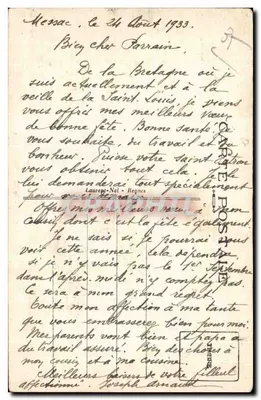 Messac, le 24 Août 1933.
Bien cher Parrain,
De la Bretagne où je
suis actuellement et à la
veille de la Saint Louis, je viens
vous offrir mes meilleurs vœux
de bonne fête. Bonne santé, je
vous souhaite, du travail et du
bonheur. Puisse votre saint patron
vous obtenir tout cela. Je
lui demanderai tout spécialement
pour
Laurent-Nel - Rennes
mon
cousin, dont c'est la fête également.
Je ne sais si je pourrai vous
voir cette année, cela dépendra
si je n'y vais pas le 1er Septembre
dans l'après-midi n'y comptez pas
ce sera à mon grand regret.
Toute mon affection à ma tante
que vous embrasserez bien pour moi.
Mes parents vont bien et papa a
du travail assuré. Bien des choses à
mon cousin et à ma cousine.
Meilleurs baisers de votre filleul
affectionné. Joseph Arnaud
CARTE POSTALE